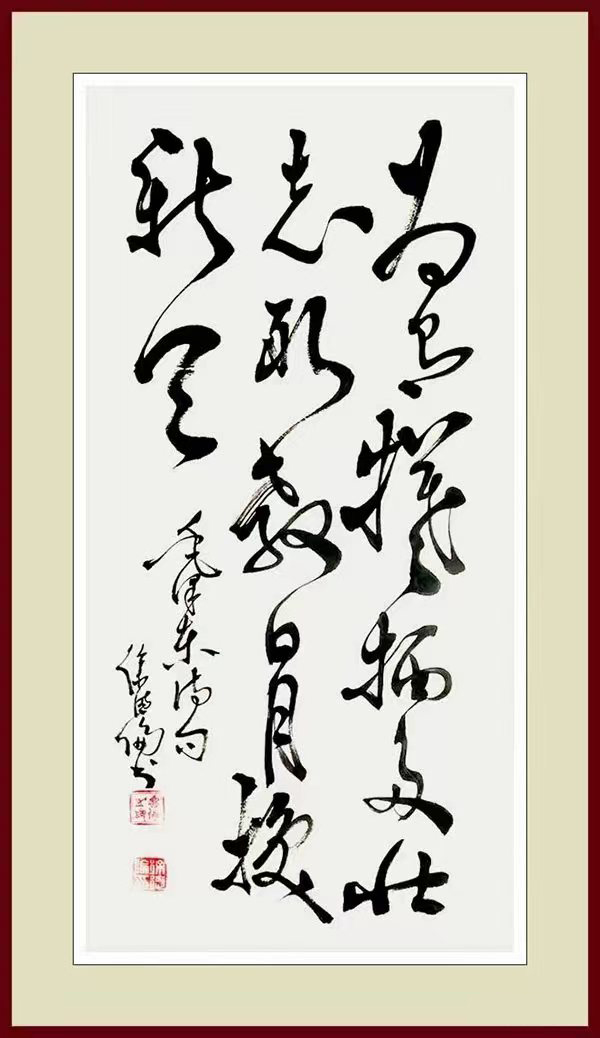 为有犧牲多壮
志敢教日月换
新天
毛泽东诗句
徐德书